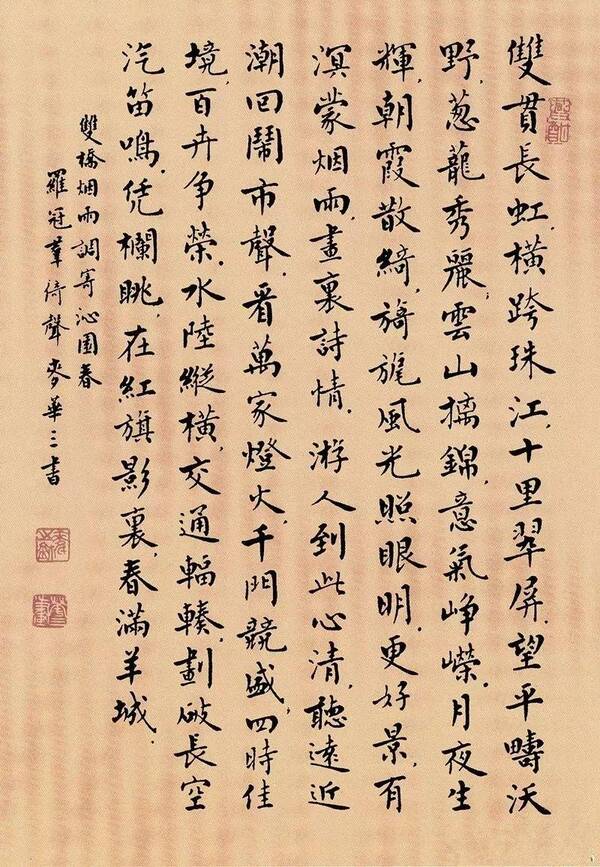 雙貫長虹，橫跨珠江，十里翠屏。望平疇沃
野，蔥蘢秀麗，雲山摛錦，意氣崢嶸。月夜生
輝，朝霞散綺，旖旎風光照眼明。更好景，有
溟蒙烟雨，畫裏詩情。游人到此心清，聽遠近
潮回鬧市聲。看萬家燈火，千門競盛，四時佳
境，百卉争榮。水陸縱橫，交通輻輳，劃破長空
汽笛鳴。凭欄眺，在紅旗影裏，春滿羊城。
雙橋烟雨調寄沁園春
羅冠羣倚聲麥華三書